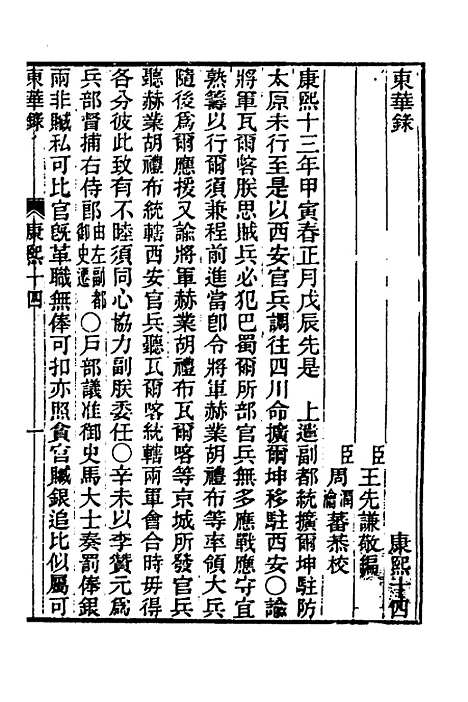 東華錄
康熙十四
臣王先謙敬編
臣周潤蕃周瀹蕃恭校
康熙十三年甲寅春正月戊辰先是　上遣副都統擴爾坤駐防
太原未行至是以西安官兵調往四川命擴爾坤移駐西安〇諭
將軍瓦爾喀朕思賊兵必犯巴蜀爾所部官兵無多應戰應守宜
熟籌以行爾須兼程前進當卽令將軍赫業胡禮布率領大兵
隨後爲爾應援又諭將軍赫業胡禮布瓦爾喀等京城所發官兵
聽赫業胡禮布統轄西安官兵聽瓦爾喀統轄兩軍會合時毋得
各分彼此致有不睦須同心協力副朕委任〇辛未以李贊元爲
兵部督捕右侍郎由左副都御史遷〇戸部議准御史馬大士奏罰俸銀
兩非贓私可比官旣革職無俸可扣亦照貪官贓銀追比似屬可
東華錄
康熙十四
一